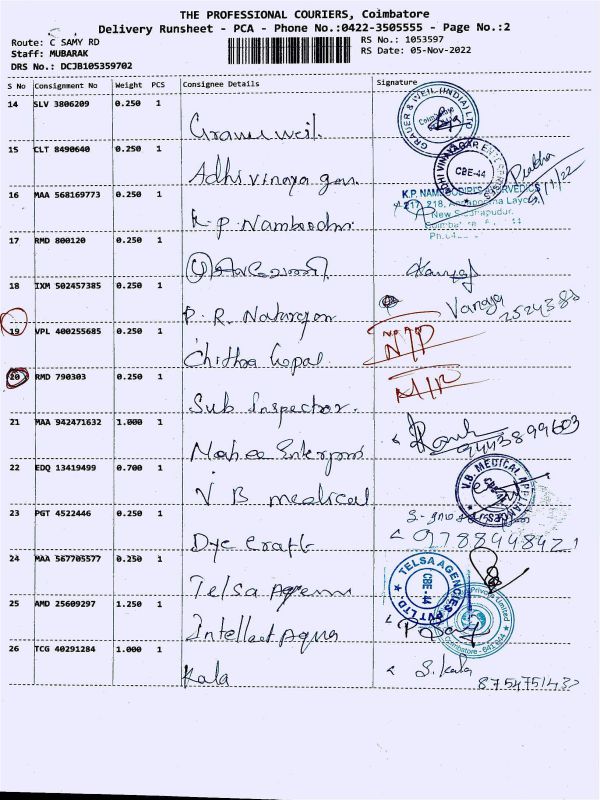 THE PROFESSIONAL COURIERS, Coimbatore
Delivery Runsheet - PCA - Phone No.:0422-3505555 - Page No.:2
Route: C SAMY RD
RS No.: 1053597
Staff: MUBARAK
RS Date: 05-Nov-2022
DRS No.: DCJB105359702
S No Consignment No Weight PCS Consignee Details Signature
14 SLV 3806209 0.250 1
GRAUER & WEIL (INDIA) LTD
15 CLT 8490640 0.250 1
Adhi vinaya gar
CBE-44
Prabha
16 MAA 568169773 0.250 1
K.P. Namboodiri
New Siddhapudur,
17 RMD 800120 0.250 1
18 IXM 502457385 0.250 1
P. R. Natarajan
Vanaja
19 VPL 400255685 0.250 1
Chithra Gopal
N/P
20 RMD 790303 0.250 1
Sub Inspector.
21 MAA 942471632 1.000 1
9443899603
22 EDQ 13419499 0.700 1
V B medical
V.B. MEDICAL
23 PGT 4522446 0.250 1
Dye Craft
9788948421
24 MAA 567705577 0.250 1
Telsa
TELSA AGENCIES PVT LTD.
CBE - 44
25 AMD 25609297 1.250 1
Intellect Aqua
Private Limited
Coimbatore - 641 044
26 TCG 40291284 1.000 1
Kala
S. Kala